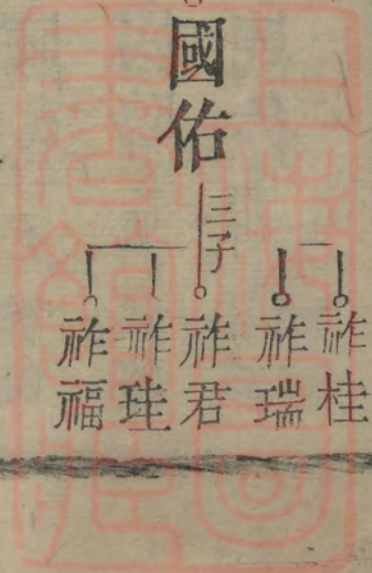 國佑
三子
祚桂
祚瑞
祚君
祚珪
祚福